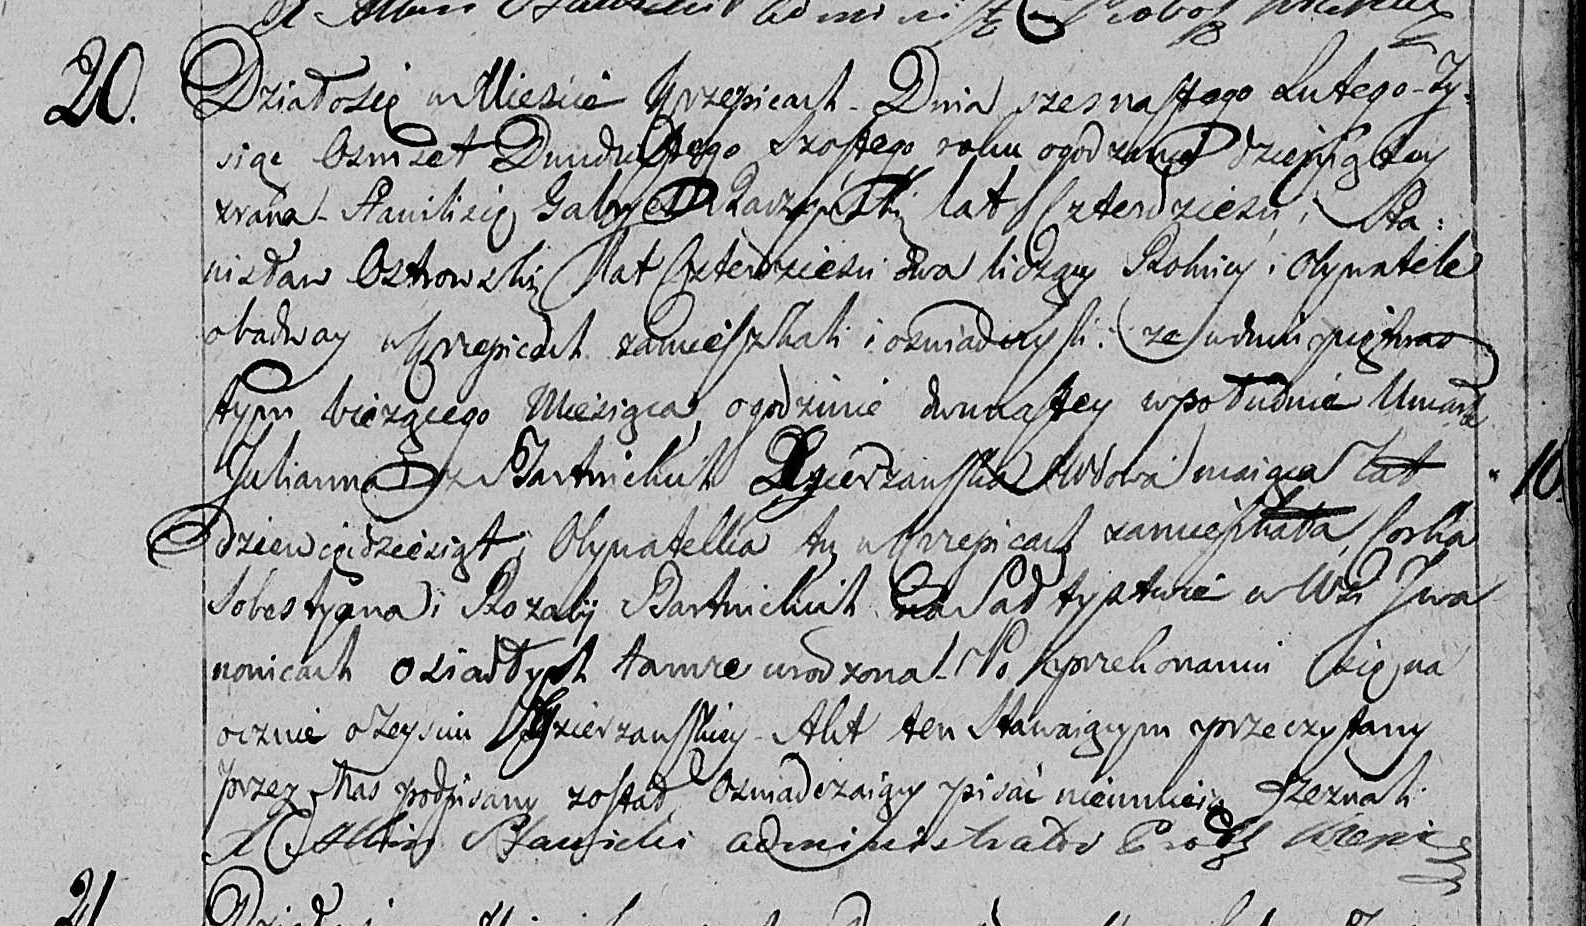 20.
Działosię w Mieście Krzepicach - Dnia szesnastego Lutego - Ty-
siąc Osmset Dwudziestego Szostego roku ogodzinie dziesiątey
zrana - Stawilisię Gabryel Raczyński lat Czterdzieści, i Sta:
nisław Ostrowski lat Czterdzieści dwa liczący Rolnicy i Obywatele
obadway w Krzepicach zamieszkali i oswiadczyli: ze w dniu piętnas
tym bieżącego Miesiąca, ogodzinie dwunastey wpołudnie Umarła
Julianna z Bartnickich Dzierzanska Wdowa maiąca lat
dziewięćdziesiąt, Obywatelka tu w Krzepicach zamieszkała, Corka
Sobestyana i Rozalij Bartnickich w Wsi Iwa
nowicach osiadłych tamze urodzona - Po przekonaniu się na
ocznie o Zeysciu Dzierzanskiey - Akt ten Stawaiącym przeczytany
przez Nas podpisany został, Oswiadczaiący pisać nieumieią Zeznali
X Albin administrator Krzepic
21